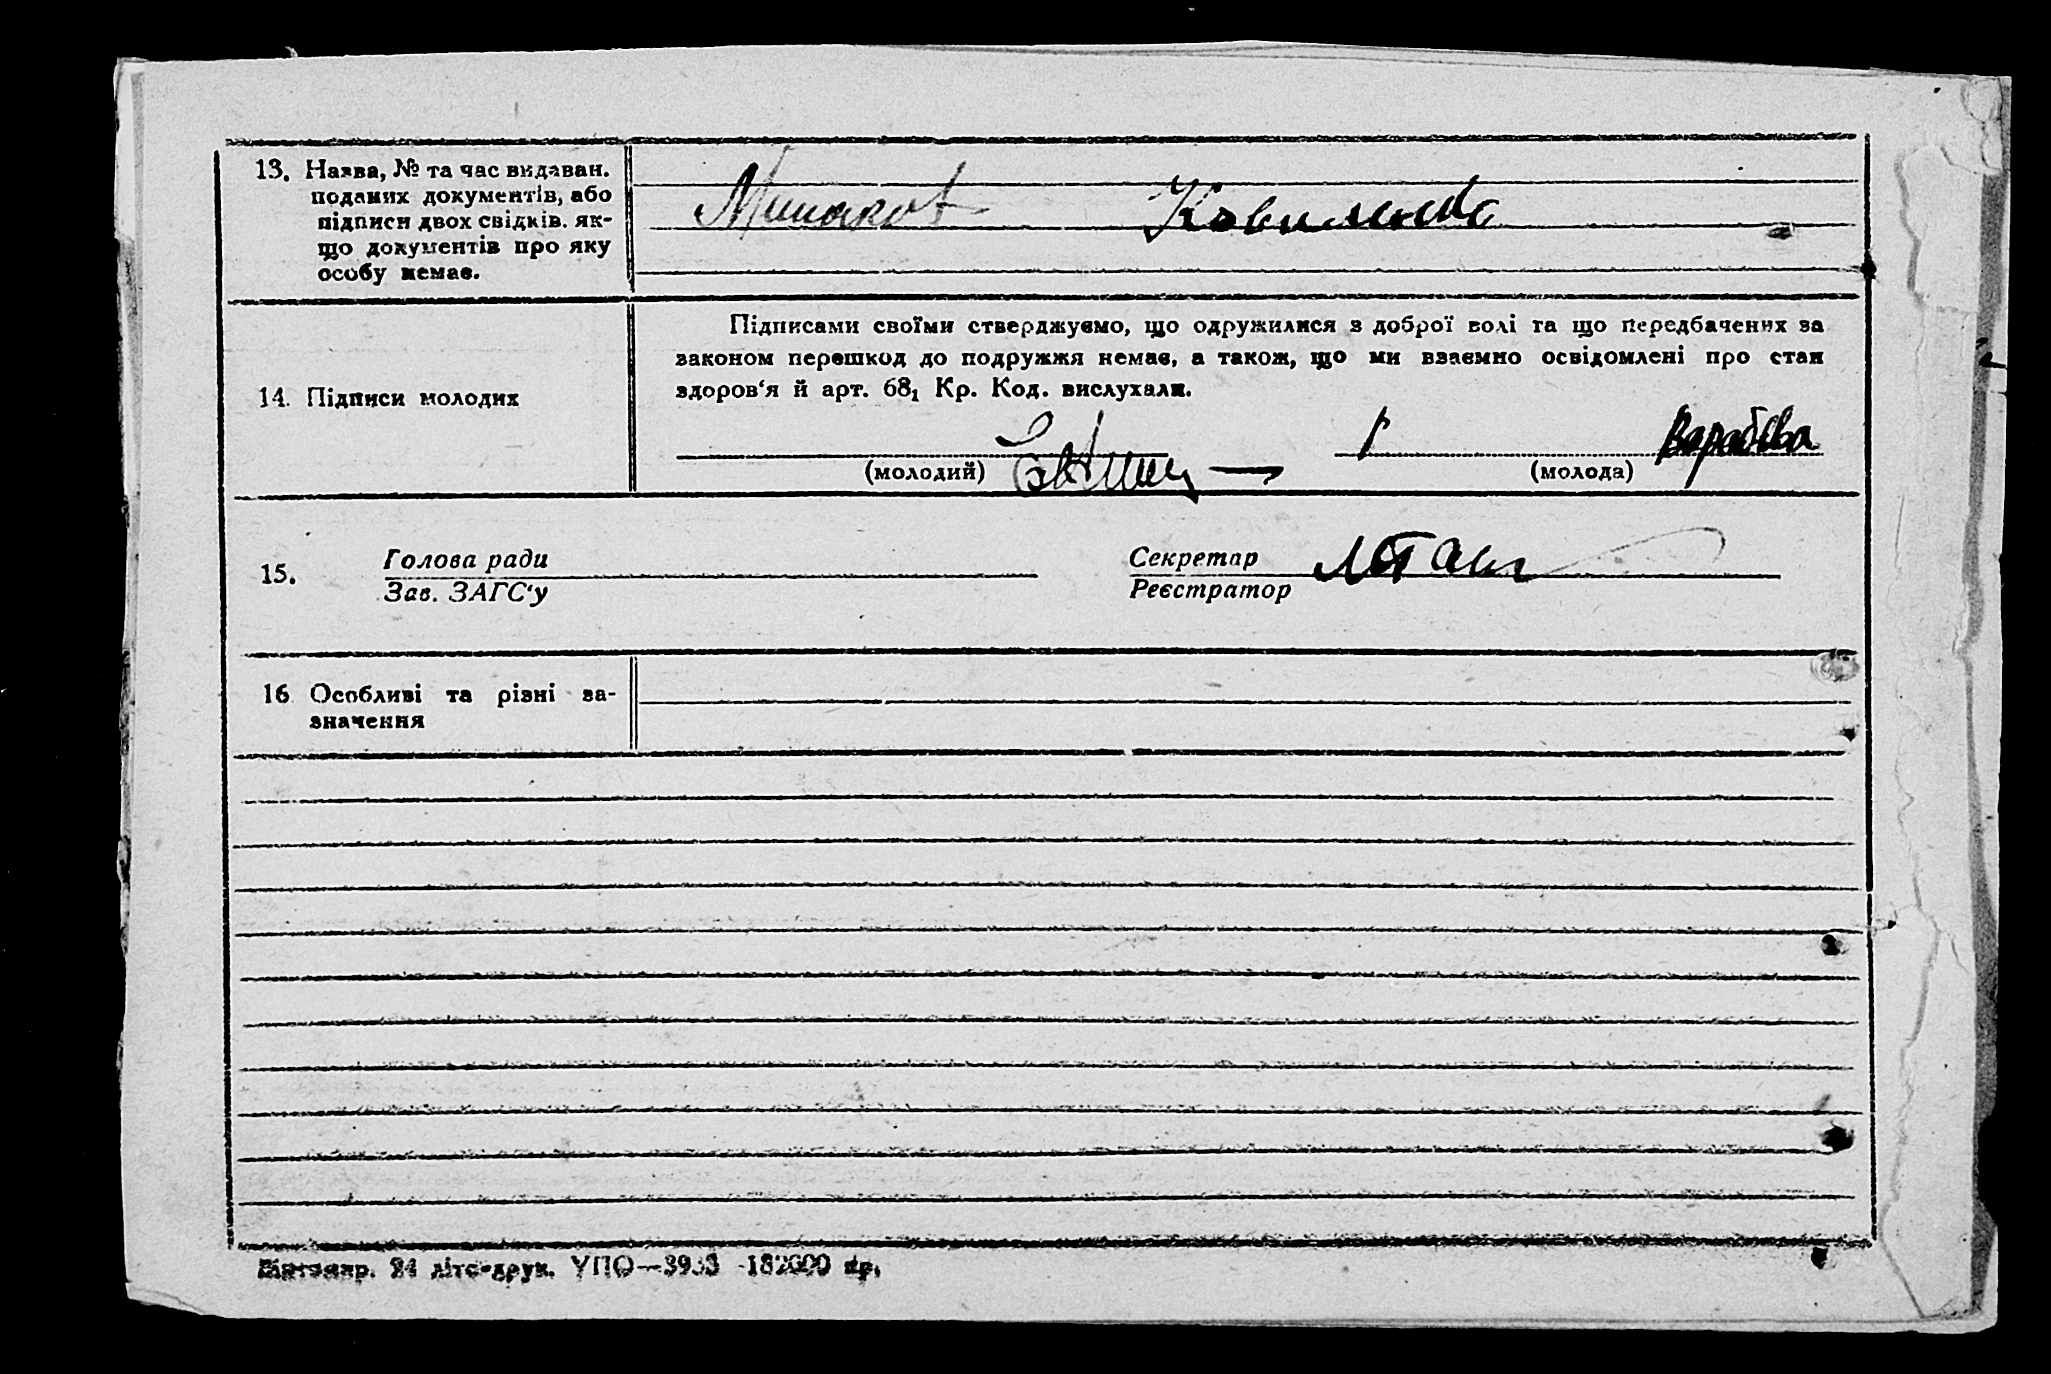 13. Назва, № та час видаван.
поданих документів, або
підписи двох свідків, як-
що документів про яку
особу немає.
Минаков
14. Підписи молодих
Підписами своїми стверджуємо, що одружилися з доброї волі та що передбачених за
законом перешкод до подружжя немає, а також, що ми взаємно освідомлені про стан
здоров'я й арт. 68₁ Кр. Код. вислухали.
(молодий)
(молода)
15.
Голова ради
Зав. ЗАГС'у
Секретар
Реєстратор
16 Особливі та різні за-
значення
24 літо-друк. УПО—3933 -182000 пр.